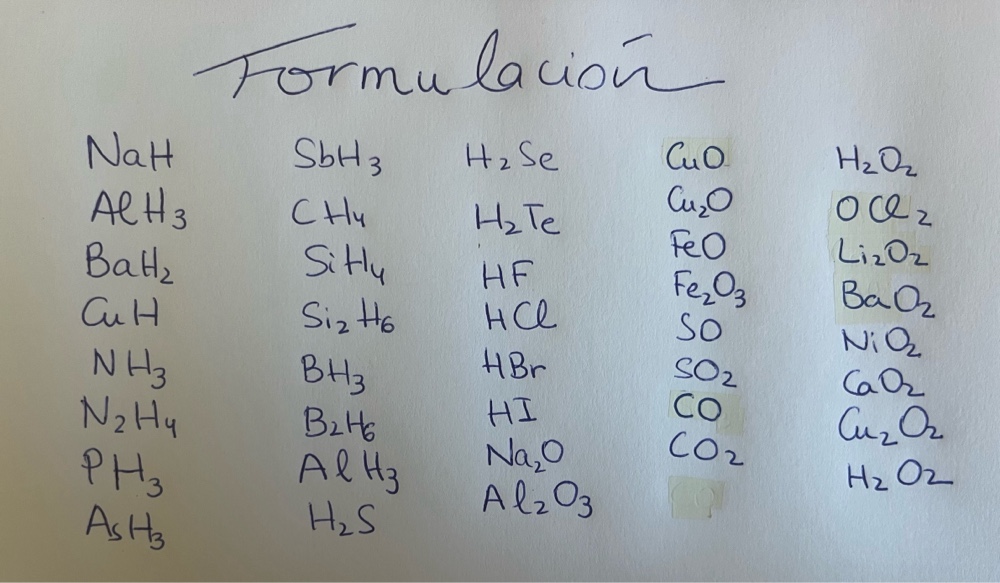 Formulación
NaH
AlH3
BaH2
CuH
NH3
N2H4
PH3
AsH3
SbH3
CH4
SiH4
Si2H6
BH3
B2H6
AlH3
H2S
H2Se
H2Te
HF
HCl
HBr
HI
Na2O
Al2O3
CuO
Cu2O
FeO
Fe2O3
SO
SO2
CO
CO2
H2O2
OCl2
Li2O2
BaO2
NiO2
CaO2
Cu2O2
H2O2